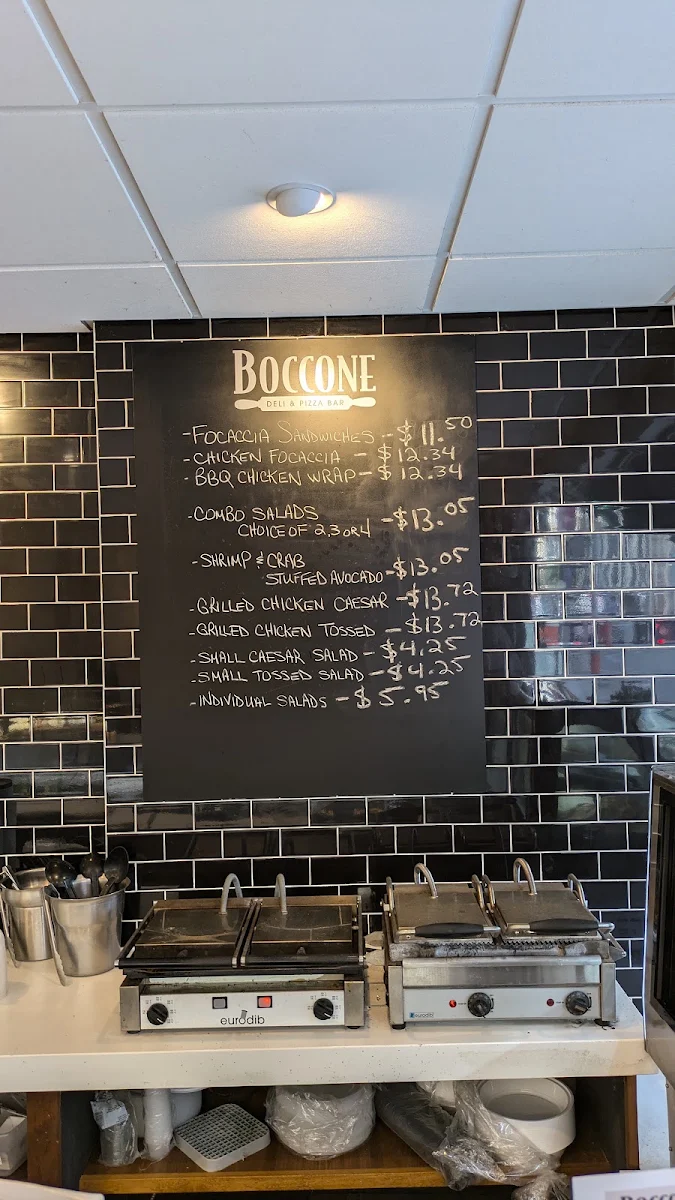 BOCCONE
DELI & PIZZA BAR
-FOCACCIA SANDWICHES -$11.50
-CHICKEN FOCACCIA -$12.34
-BBQ CHICKEN WRAP-$12.34
-COMBO SALADS
CHOICE OF 2,3 OR 4 -$13.05
-SHRIMP & CRAB
STUFFED AVOCADO -$13.05
-GRILLED CHICKEN CAESAR -$13.72
-GRILLED CHICKEN TOSSED -$13.72
-SMALL CAESAR SALAD -$4.25
-SMALL TOSSED SALAD -$4.25
-INDIVIDUAL SALADS -$5.95
eurodib
eurodib